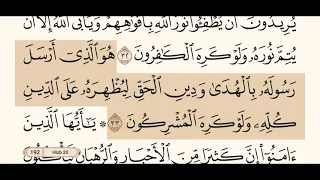 يُرِيدُونَ أَن يُطْفِـُٔوا۟ نُورَ ٱللَّهِ بِأَفْوَٰهِهِمْ وَيَأْبَى ٱللَّهُ إِلَّآ أَن
يُتِمَّ نُورَهُۥ وَلَوْ كَرِهَ ٱلْكَٰفِرُونَ ٣٢ هُوَ ٱلَّذِىٓ أَرْسَلَ
رَسُولَهُۥ بِٱلْهُدَىٰ وَدِينِ ٱلْحَقِّ لِيُظْهِرَهُۥ عَلَى ٱلدِّينِ
كُلِّهِۦ وَلَوْ كَرِهَ ٱلْمُشْرِكُونَ ٣٣ ۞ يَٰٓأَيُّهَا ٱلَّذِينَ
192 Hizb 20
ءَامَنُوٓا۟ إِنَّ كَثِيرًا مِّنَ ٱلْأَحْبَارِ وَٱلرُّهْبَانِ لَيَأْكُلُونَ